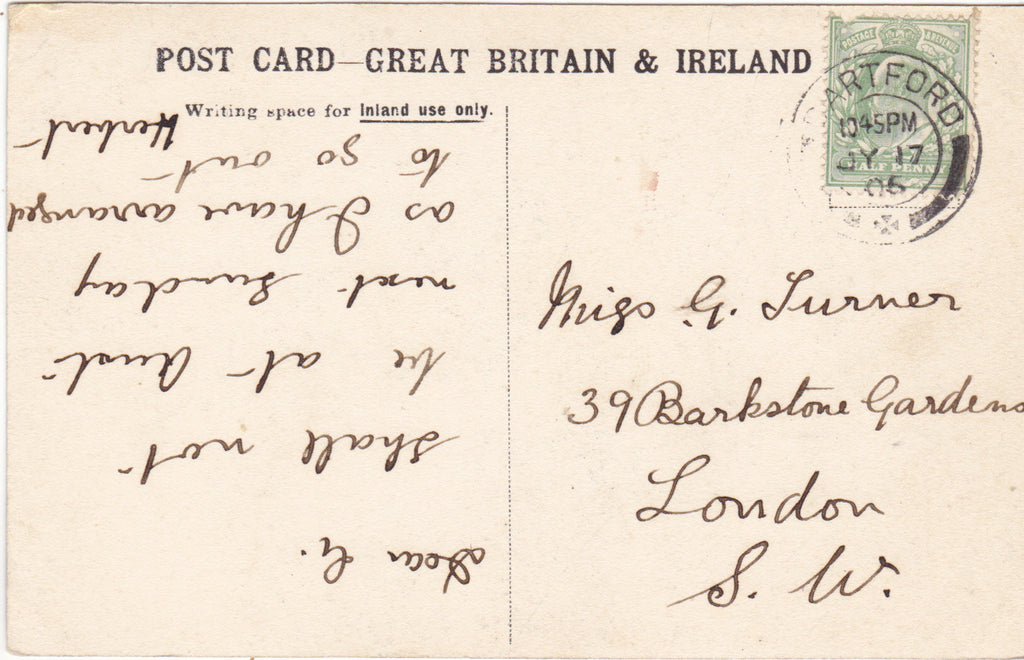 POST CARD—GREAT BRITAIN & IRELAND
Writing space for Inland use only.
POSTAGE & REVENUE
HALF PENNY
DARTFORD
10 45PM
JY 17
06
Dear G.
Shall not
be at Aunt
next Sunday
as I have arranged
to go out
Herbert
Miss G. Turner
39 Barkstone Gardens
London
S. W.